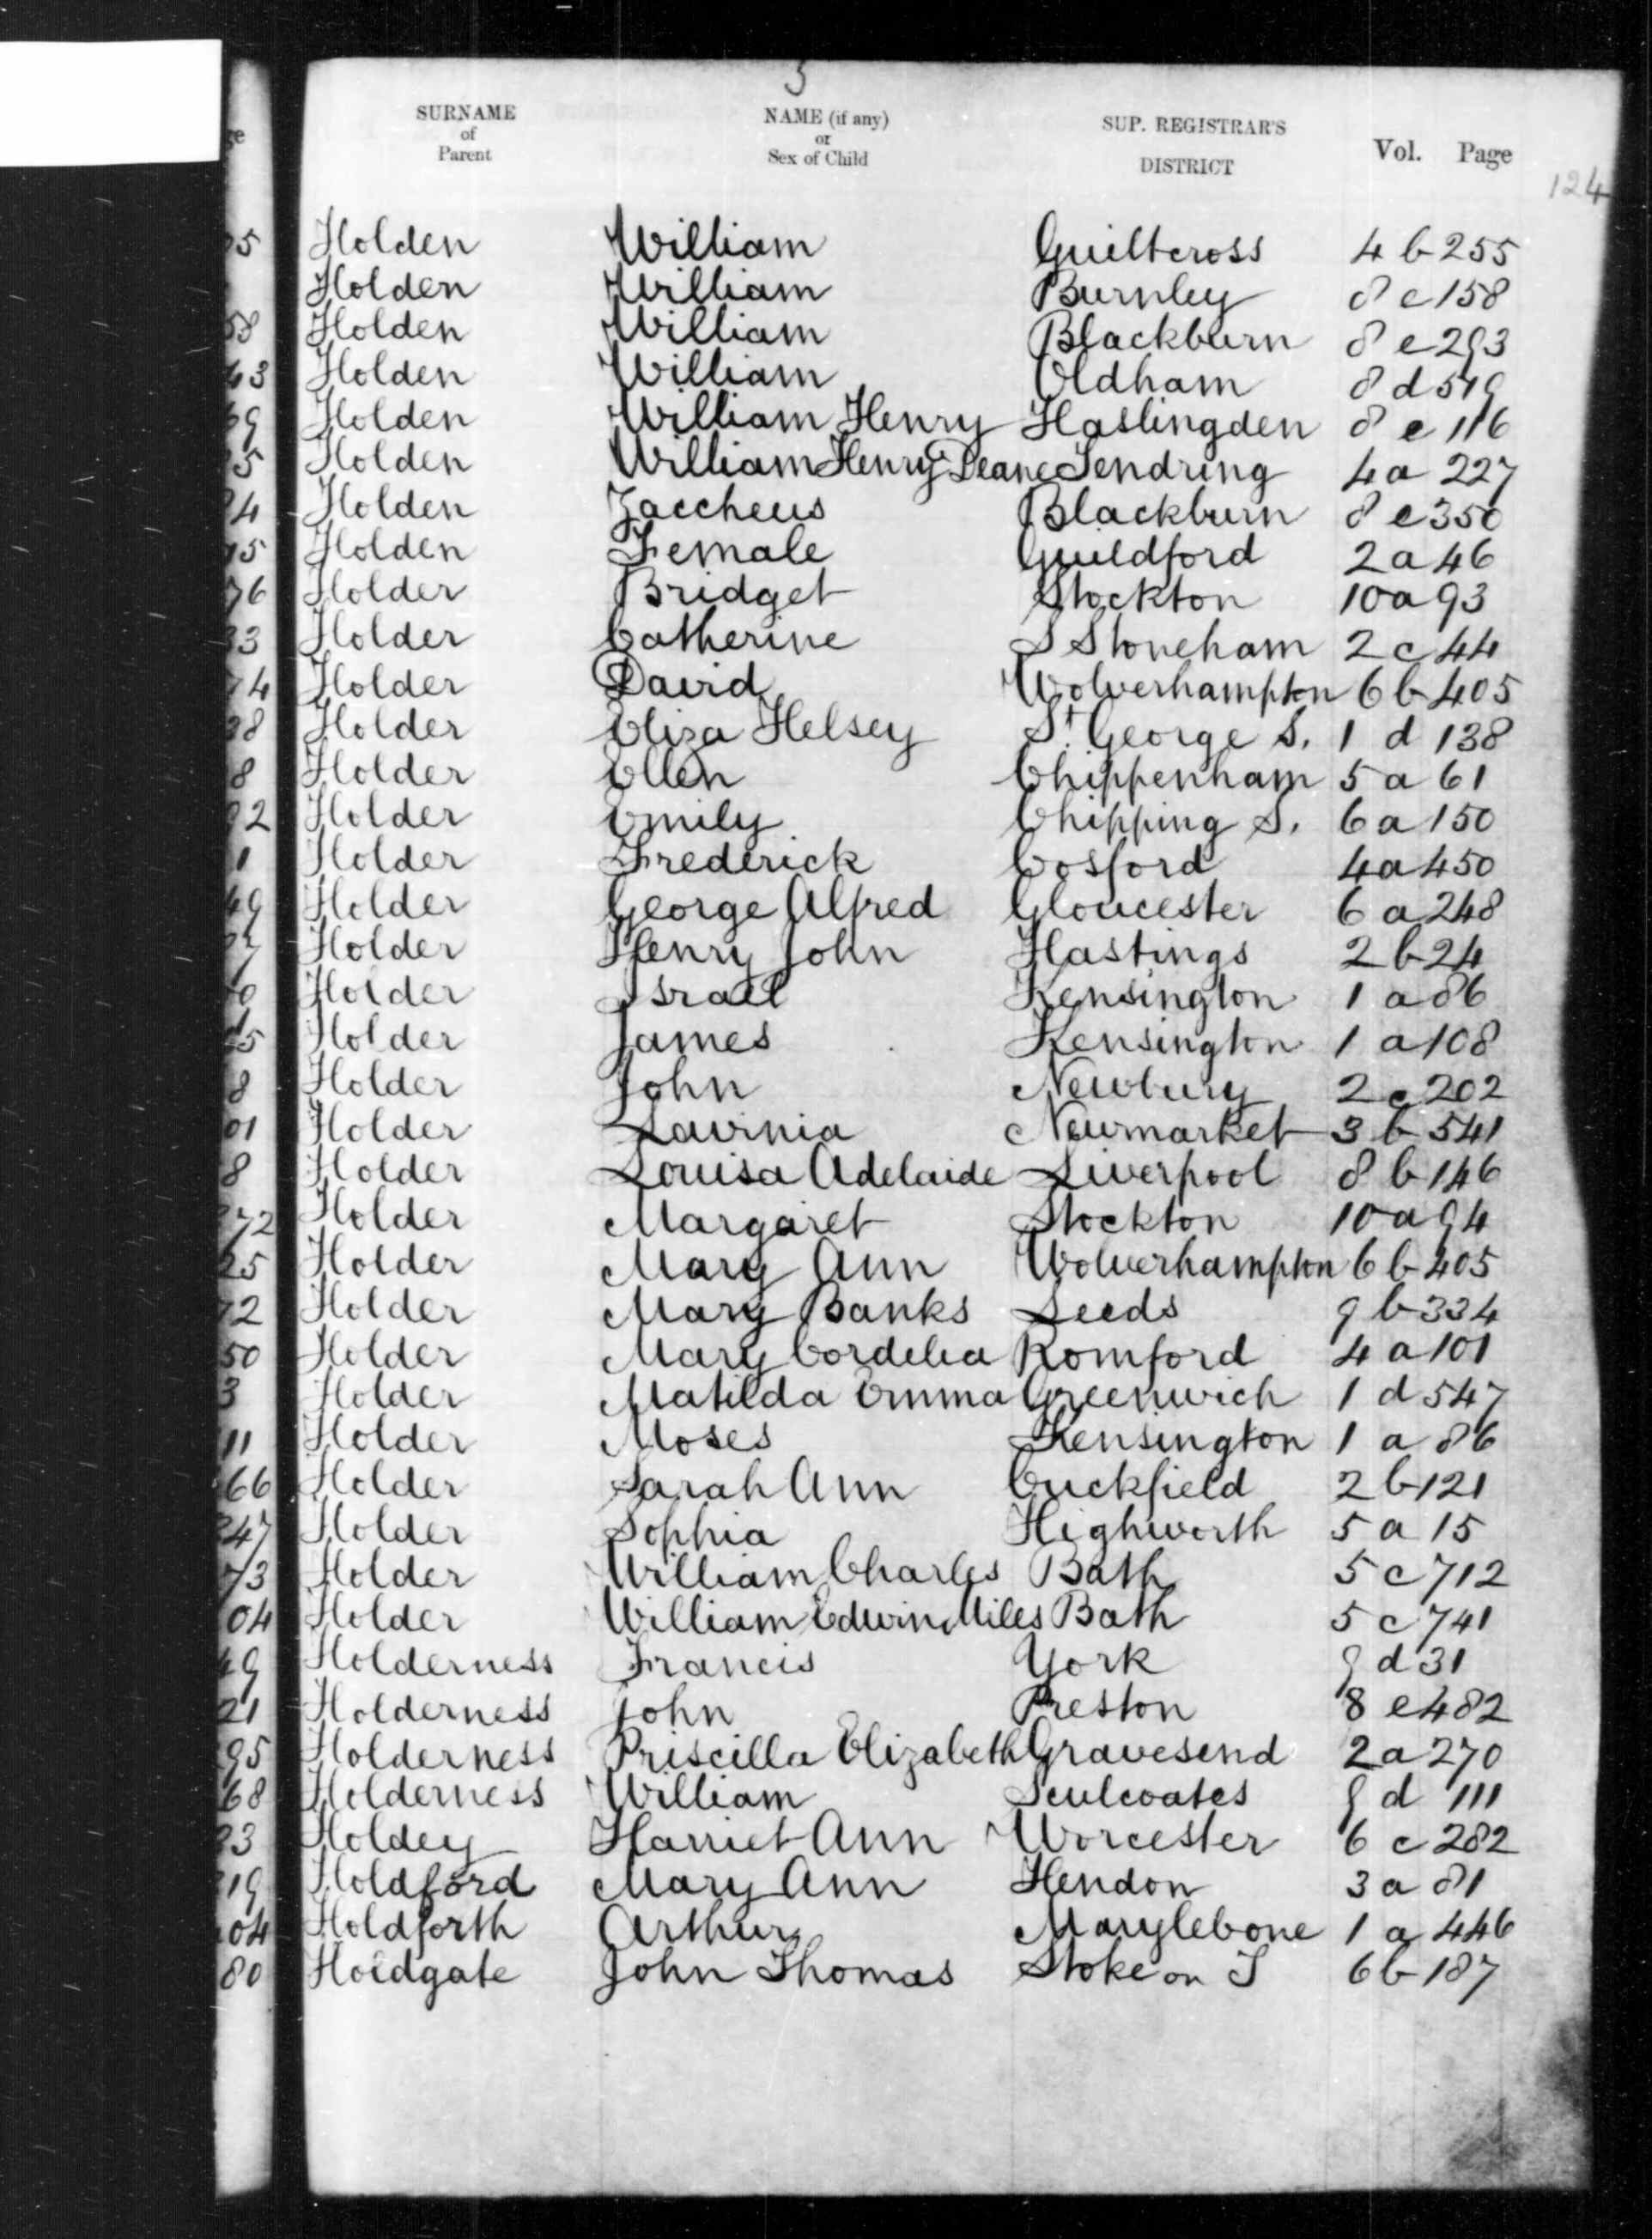 3
SURNAME of Parent NAME (if any) or Sex of Child SUP. REGISTRAR'S DISTRICT Vol. Page
124
Holden William Guiltcross 4 b 255
Holden William Burnley 8 e 158
Holden William Blackburn 8 e 293
Holden William Oldham 8 d 519
Holden William Henry Haslingden 8 e 116
Holden William Henry Deane Tendring 4 a 227
Holden Zaccheus Blackburn 8 e 350
Holden Female Guildford 2 a 46
Holder Bridget Stockton 10 a 93
Holder Catherine S Stoneham 2 c 44
Holder David Wolverhampton 6 b 405
Holder Eliza Helsey St George S. 1 d 138
Holder Ellen Chippenham 5 a 61
Holder Emily Chipping S. 6 a 150
Holder Frederick Cosford 4 a 450
Holder George Alfred Gloucester 6 a 248
Holder Henry John Hastings 2 b 24
Holder Israel Kensington 1 a 86
Holder James Kensington 1 a 108
Holder John Newbury 2 c 202
Holder Lavinia Newmarket 3 b 541
Holder Louisa Adelaide Liverpool 8 b 146
Holder Margaret Stockton 10 a 94
Holder Mary Ann Wolverhampton 6 b 405
Holder Mary Banks Leeds 9 b 334
Holder Mary Cordelia Romford 4 a 101
Holder Matilda Emma Greenwich 1 d 547
Holder Moses Kensington 1 a 86
Holder Sarah Ann Cuckfield 2 b 121
Holder Sophia Highworth 5 a 15
Holder William Charles Bath 5 c 712
Holder William Edwin Miles Bath 5 c 741
Holderness Francis York 9 d 31
Holderness John Preston 8 e 482
Holderness Priscilla Elizabeth Gravesend 2 a 270
Holderness William Sculcoates 9 d 111
Holdey Harriet Ann Worcester 6 c 282
Holdford Mary Ann Hendon 3 a 81
Holdforth Arthur Marylebone 1 a 446
Holdgate John Thomas Stoke on T 6 b 187